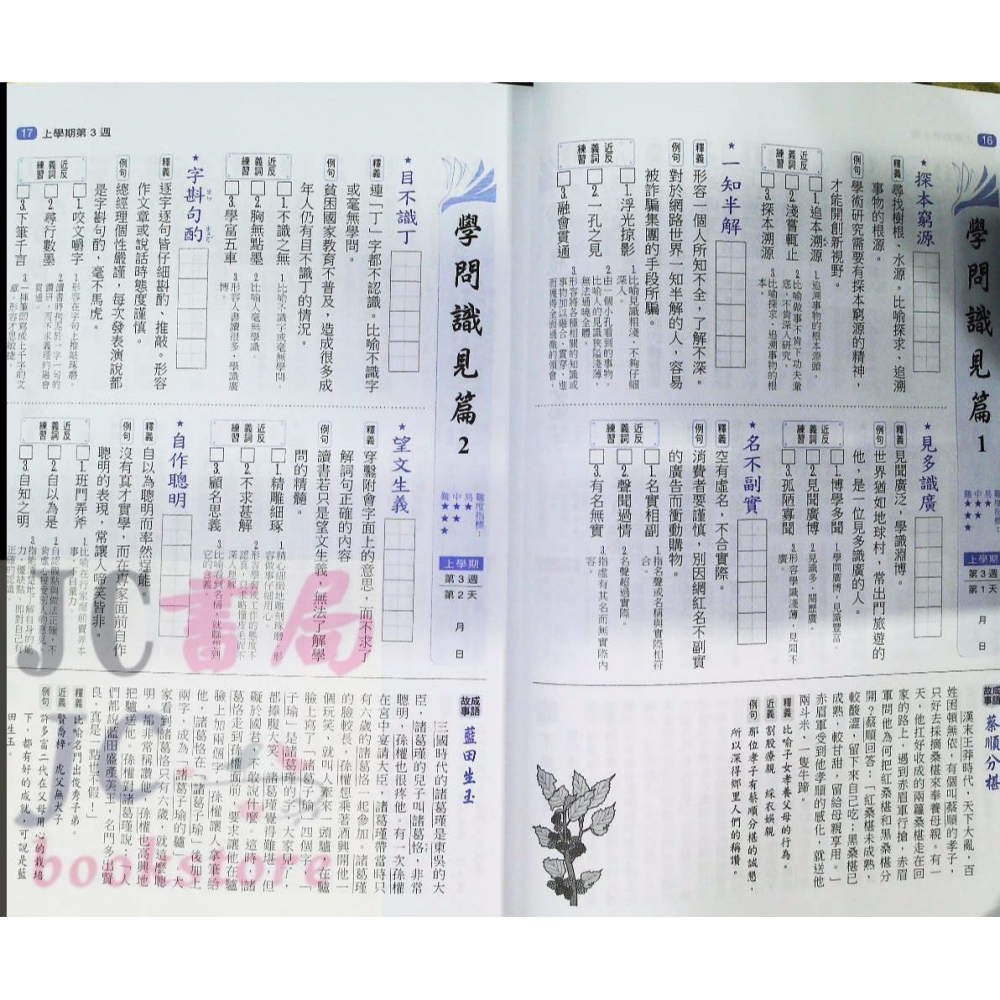 16
學問識見篇 1
難度指標：
易★
中★★
難★★★
上學期
第3週
第1天
月 日
★探本窮源
釋義 尋找樹根、水源。比喻探求、追溯
事物的根源。
例句 學術研究需要有探本窮源的精神，
才能開創新視野。
近反義詞練習
1.追本溯源
2.淺嘗輒止
3.探本溯源
1.追溯事物的根本源頭。
2.比喻做事不肯下功夫徹
底，不肯深入研究。
3.比喻探求、追溯事物的根
本。
★一知半解
釋義 形容一個人所知不全，了解不深。
例句 對於網路世界一知半解的人，容易
被詐騙集團的手段所騙。
近反義詞練習
1.浮光掠影
2.一孔之見
3.融會貫通
1.比喻見識粗淺，不夠仔細
深入。
2.由一個小孔看到的事物。
比喻人的見識狹隘淺薄，
無法通曉全體。
3.形容將各種相關的知識或
事物加以融合、貫穿，進
而獲得全面通徹的領會。
★見多識廣
釋義 見聞廣泛，學識淵博。
例句 世界猶如地球村，常出門旅遊的
他，是一位見多識廣的人。
近反義詞練習
1.博學多聞
2.見聞廣博
3.孤陋寡聞
1.學問廣博，見識豐富。
2.見識多，閱歷廣。
3.形容學識淺薄，見聞不
廣。
★名不副實
釋義 空有虛名，不合實際。
例句 消費者要謹慎，別因網紅名不副實
的廣告而衝動購物。
近反義詞練習
1.名實相副
2.聲聞過情
3.有名無實
1.指名聲或名稱與實際相符
合。
2.名聲超過實際。
3.指虛有其名而無實際內
容。
成語故事 蔡順分椹
漢末王莽時代，天下大亂，百
姓困頓無依。有個叫蔡順的孝子，
只好去採摘桑椹來奉養母親。有一
天，他扛好收成的兩籮桑椹走在回
家的路上，遇到赤眉軍行搶，赤眉
軍問他為何把紅桑椹和黑桑椹分
開？蔡順回答：「紅桑椹未成熟，
較酸澀，留下來自己吃；黑桑椹已
成熟，較甘甜，留給母親享用。」
赤眉軍受到他孝順的感化，就送他
兩斗米、一隻牛蹄。
釋義 比喻子女孝養父母的行為。
近義 割股療親 綵衣娛親
例句 那位孝子有蔡順分椹的誠懇，
所以深得鄉里人們的稱讚。
17 上學期第3週
學問識見篇 2
難度指標：
易★
中★★
難★★★
上學期
第3週
第2天
月 日
★目不識丁
釋義 連「丁」字都不認識。比喻不識字
或毫無學問。
例句 貧困國家教育不普及，造成很多成
年人仍有目不識丁的情況。
近反義詞練習
1.不識之無
2.胸無點墨
3.學富五車
1.比喻不識字或毫無學問。
2.比喻人毫無學識。
3.形容人書讀很多，學識廣
博。
★字斟句酌
釋義 逐字逐句皆仔細斟酌、推敲。形容
作文章或說話時態度謹慎。
例句 總經理個性嚴謹，每次發表演說都
是字斟句酌，毫不馬虎。
近反義詞練習
1.咬文嚼字
2.尋行數墨
3.下筆千言
1.形容在字句上推敲琢磨。
2.讀書時拘泥於一字一句的
讀研，而不求義理的融會
貫通。
3.一揮筆即寫成上千字的文
章。形容才思敏捷。
★望文生義
釋義 穿鑿附會字面上的意思，而不求了
解詞句正確的內容
例句 讀書若只是望文生義，無法了解學
問的精髓。
近反義詞練習
1.精雕細琢
2.不求甚解
3.顧名思義
★自作聰明
釋義 自以為聰明而率然逞能。
例句 沒有真才實學，而在專家面前自作
聰明的表現，常讓人啼笑皆非。
近反義詞練習
1.班門弄斧
2.自以為是
3.自知之明
成語故事 藍田生玉
三國時代的諸葛瑾是東吳的大
臣，諸葛瑾的兒子叫諸葛恪，非常
聰明，孫權也很疼他。有一次孫權
在宮中宴請大臣，諸葛瑾帶當時只
有六歲的諸葛恪一起參加，諸葛瑾
的臉較長，孫權想乘著酒興開他一
個玩笑，就叫人牽來一頭驢，在驢
臉上寫了「諸葛子瑜」四個字，
「子瑜」是諸葛瑾的字，大家見了
都捧腹大笑。諸葛瑾覺得難堪，但
礙於國君，不敢說什麼。這時，諸
葛恪走到孫權面前，要求讓他在驢
臉上加兩個字，孫權讓人拿筆給
他，諸葛恪在「諸葛子瑜」後加上
JC書局
JC's
bookstore